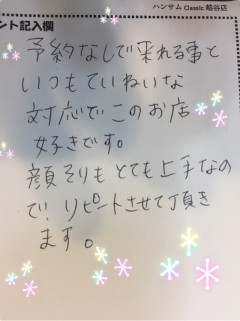 ハンサム Classic 蛤谷店
ント記入欄
予約なしで来れる事と
いつもていねいな
対応でこのお店
好きです。
顔そりもとても上手なの
で! リピートさせて頂き
ます。